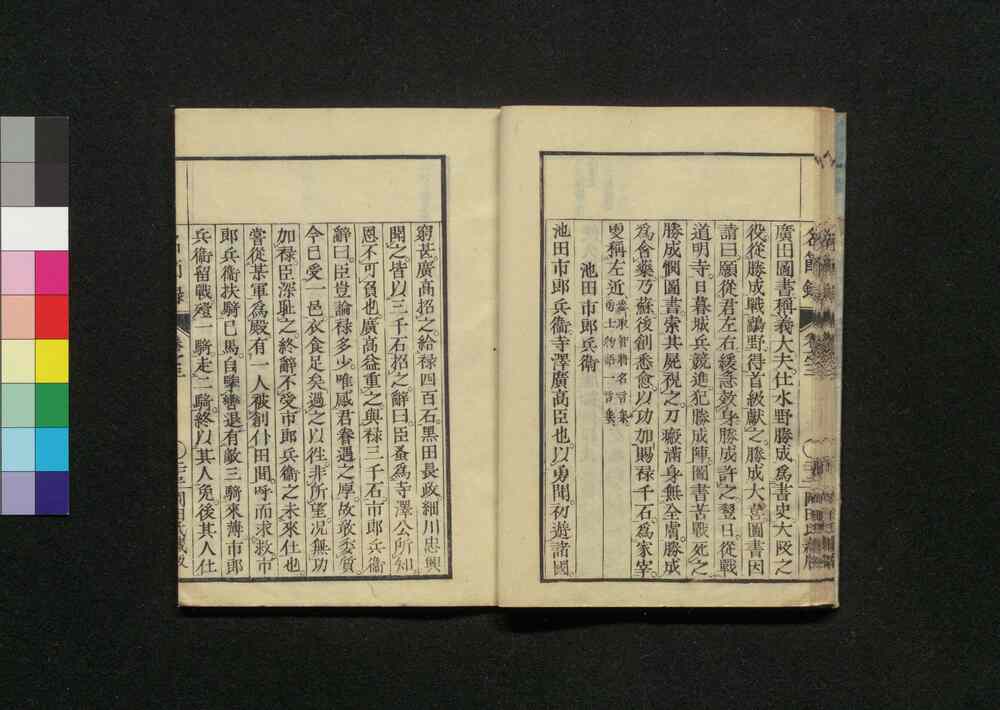 廣田圖書稱義大夫仕水野勝成爲書史大阪之
役從勝成戰鷸野得首級獻之勝成大喜圖書因
請曰願從君左右緩急效身勝成許之翌日從戰
道明寺日暮城兵競進犯勝成陣圖書苦戰死之
勝成憫圖書索其屍視之刀瘢滿身無全膚勝成
爲含藥乃蘇後創悉愈以功加賜祿千石爲家宰
更稱左近
勇士物語一言集
池田市郎兵衞
池田市郎兵衞寺澤廣高臣也以勇聞初遊諸國
窮甚廣高招之給祿四百石黑田長政細川忠興
聞之皆以三千石招之辭曰臣蚤爲寺澤公所知
恩不可負也廣高益重之與祿三千石市郎兵衞
辭曰臣豈論祿多少唯感君眷遇之厚故敢委質
今已受一邑衣食足矣過之以往非所望况無功
加祿臣深恥之終辭不受市郎兵衞之未來仕也
嘗從某軍爲殿有一人被創仆田間呼而求救市
郎兵衞扶騎已馬自擧轡退有敵三騎來薄市郎
兵衞留戰殪一騎走二騎終以其人免後其人仕